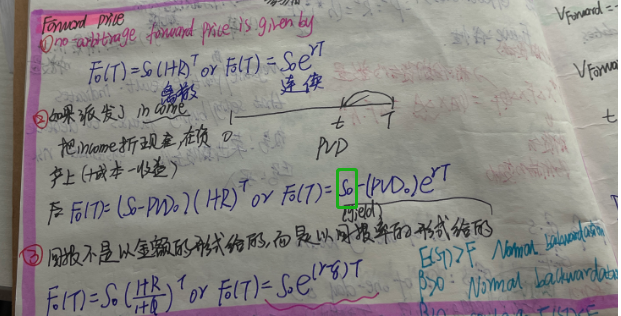 Forward price
① no arbitrage forward price is given by
F₀(T)=S₀(1+R)ᵀ or F₀(T)=S₀eʳᵀ
离散 连续
② 如果派发了 income
0 t T
把income折现,在资 PVD
产上(+成本-收益)
F₀(T)=(S₀-PVD₀)(1+R)ᵀ or F₀(T)=S₀-(PVD₀)eʳᵀ
(yield)
③ 回报不是以金额的形式给的,而是以回报率的形式给的
F₀(T)=S₀((1+R)/(1+Q))ᵀ or F₀(T)=S₀e^(r-g)T
V Forward =
V Forwa
t
E(ST)>F Normal backwardation
β>0 Normal backwardat